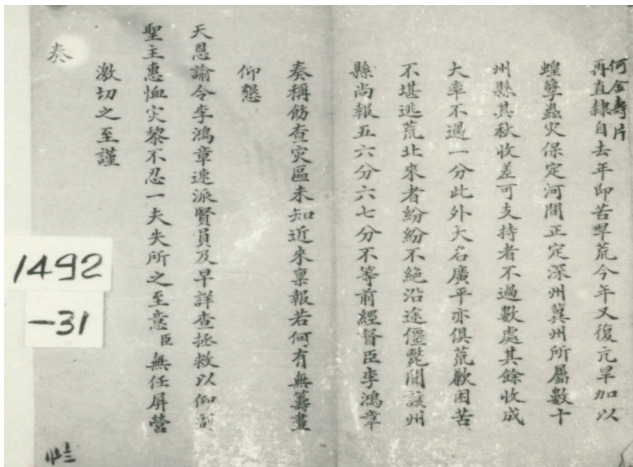 何金壽片
再直隸自去年即苦旱荒今年又復亢旱加以
蝗孽蟲灾保定河間正定深州冀州所屬數十
州縣其秋收差可支持者不過數處其餘收成
大率不過一分此外大名廣平亦俱荒歉困苦
不堪逃荒北來者紛紛不絕沿途僵斃聞該州
縣尚報五六分六七分不等前經督臣李鴻章
奏稱飭查灾區未知近來稟報若何有無籌畫
仰懇
天恩諭令李鴻章速派賢員及早詳查拯救以仰副
聖主惠恤灾黎不忍一夫失所之至意臣無任屏營
激切之至謹
奏
1492
-31